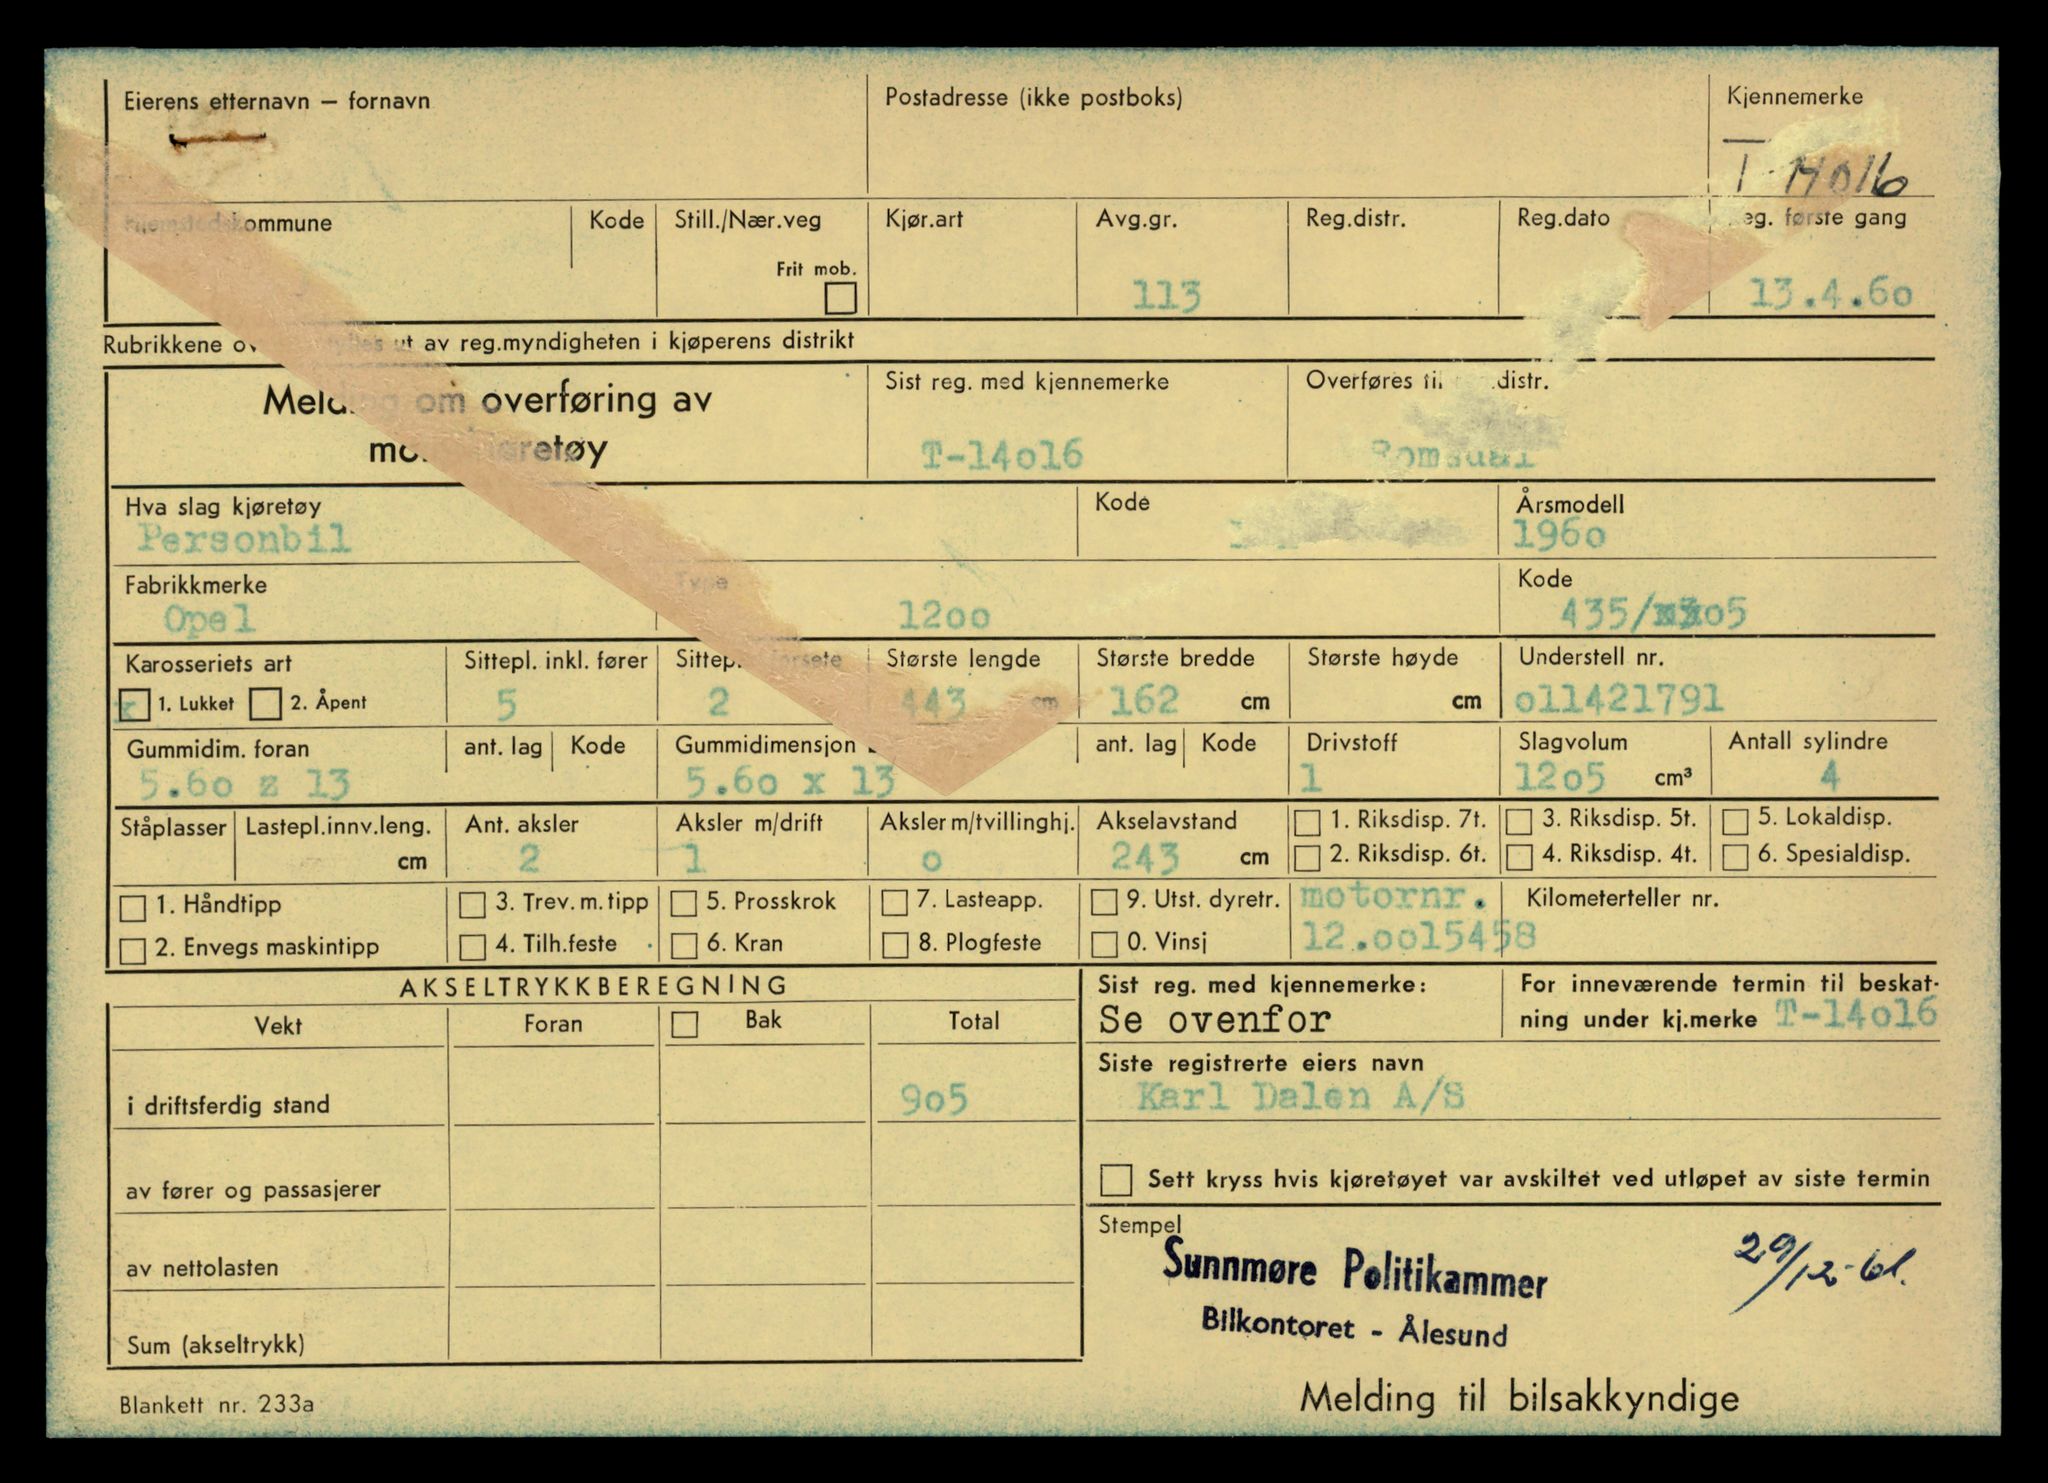 Eierens etternavn – fornavn
Postadresse (ikke postboks)
Kjennemerke
T-14016
Hjemstedskommune
Kode
Still./Nær.veg
Frit mob.
Kjør.art
Avg.gr.
113
Reg.distr.
Reg.dato
Reg. første gang
13.4.6o
Rubrikkene ut av reg.myndigheten i kjøperens distrikt
Melding om overføring av
motorkjøretøy
Sist reg. med kjennemerke
T-14o16
Overføres til distr.
Romsdal
Hva slag kjøretøy
Personbil
Kode
Årsmodell
196o
Fabrikkmerke
Opel
Type
12oo
Kode
435/ o5
Karosseriets art
x 1. Lukket 2. Åpent
Sittepl. inkl. fører
5
Sittepl. forsete
2
Største lengde
443 cm
Største bredde
162 cm
Største høyde
cm
Understell nr.
o11421791
Gummidim. foran
5.6o z 13
ant. lag
Kode
Gummidimensjon
5.6o x 13
ant. lag
Kode
Drivstoff
1
Slagvolum
12o5 cm³
Antall sylindre
4
Ståplasser
Lastepl.innv.leng.
cm
Ant. aksler
2
Aksler m/drift
1
Aksler m/tvillinghj.
o
Akselavstand
243 cm
1. Riksdisp. 7t.
2. Riksdisp. 6t.
3. Riksdisp. 5t.
4. Riksdisp. 4t.
5. Lokaldisp.
6. Spesialdisp.
1. Håndtipp
2. Envegs maskintipp
3. Trev. m. tipp
4. Tilh.feste
5. Prosskrok
6. Kran
7. Lasteapp.
8. Plogfeste
9. Utst. dyretr.
0. Vinsj
motornr.
12.oo15458
Kilometerteller nr.
AKSELTRYKKBEREGNING
Vekt
Foran
Bak
Total
i driftsferdig stand
9o5
av fører og passasjerer
av nettolasten
Sum (akseltrykk)
Sist reg. med kjennemerke:
Se ovenfor
For inneværende termin til beskat-
ning under kj.merke T-14o16
Siste registrerte eiers navn
Karl Dalen A/S
Sett kryss hvis kjøretøyet var avskiltet ved utløpet av siste termin
Stempel
Sunnmøre Politikammer
Bilkontoret - Ålesund
29/12-61.
Blankett nr. 233a
Melding til bilsakkyndige